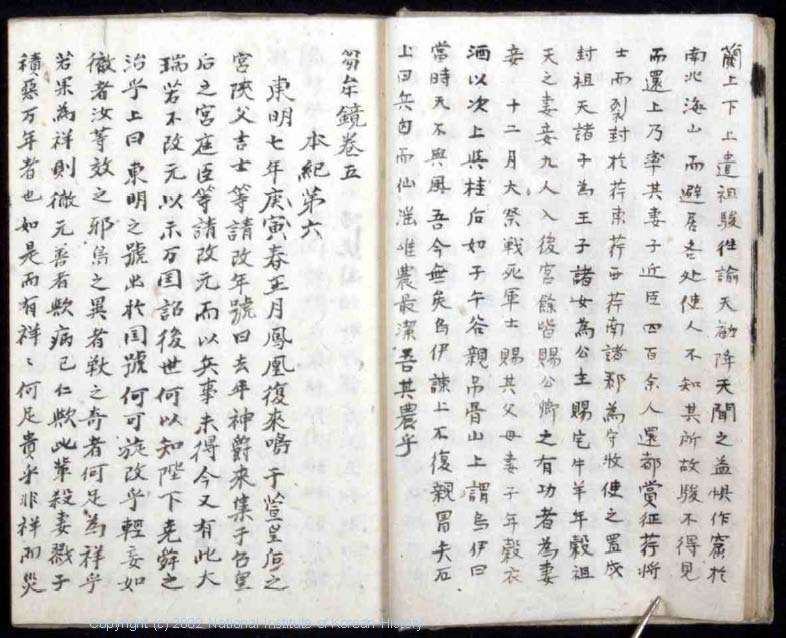 蘭上下上遣祖駿往諭天欲降天聞之益惧作窟於
南北海山而避居各处使人不知其所故駿不得見
而還上乃率其妻子近臣四百余人還都賞征荇将
士而裂封於荇東荇西荇南諸郡為守牧使之置戍
封祖天諸子為王子諸女為公主賜宅牛羊年穀祖
天之妻妾九人入後宮餘皆賜公卿之有功者為妻
妾十二月大祭戦死軍士賜其父母妻子年穀衣
酒以次上與桂后如子午谷親吊骨山上謂烏伊曰
當時天不與風吾今無矣烏伊諫上不復親冒矢石
上曰兵凶而仙滛唯農最潔吾其農乎
芻牟鏡卷五
本紀第六
東明七年庚寅春正月鳳凰復來鳴于萱皇后之
宮陜父吉士等請改年號曰去年神爵來集于召皇
后之宮庭臣等請改元而以兵事未得今又有此大
瑞若不改元以示万囯詔後世何以知陛下尭舜之
治乎上曰東明之號出於囯號何可旋改乎輕妄如
徹者汝等效之邪鳥之異者獣之奇者何足為祥乎
若果為祥則徹元善者欤病已仁欤此輩殺妻戮子
積惡万年者也如是而有祥〻何足貴乎非祥而災
Copyright (c) 2002 National Institute of Korean History